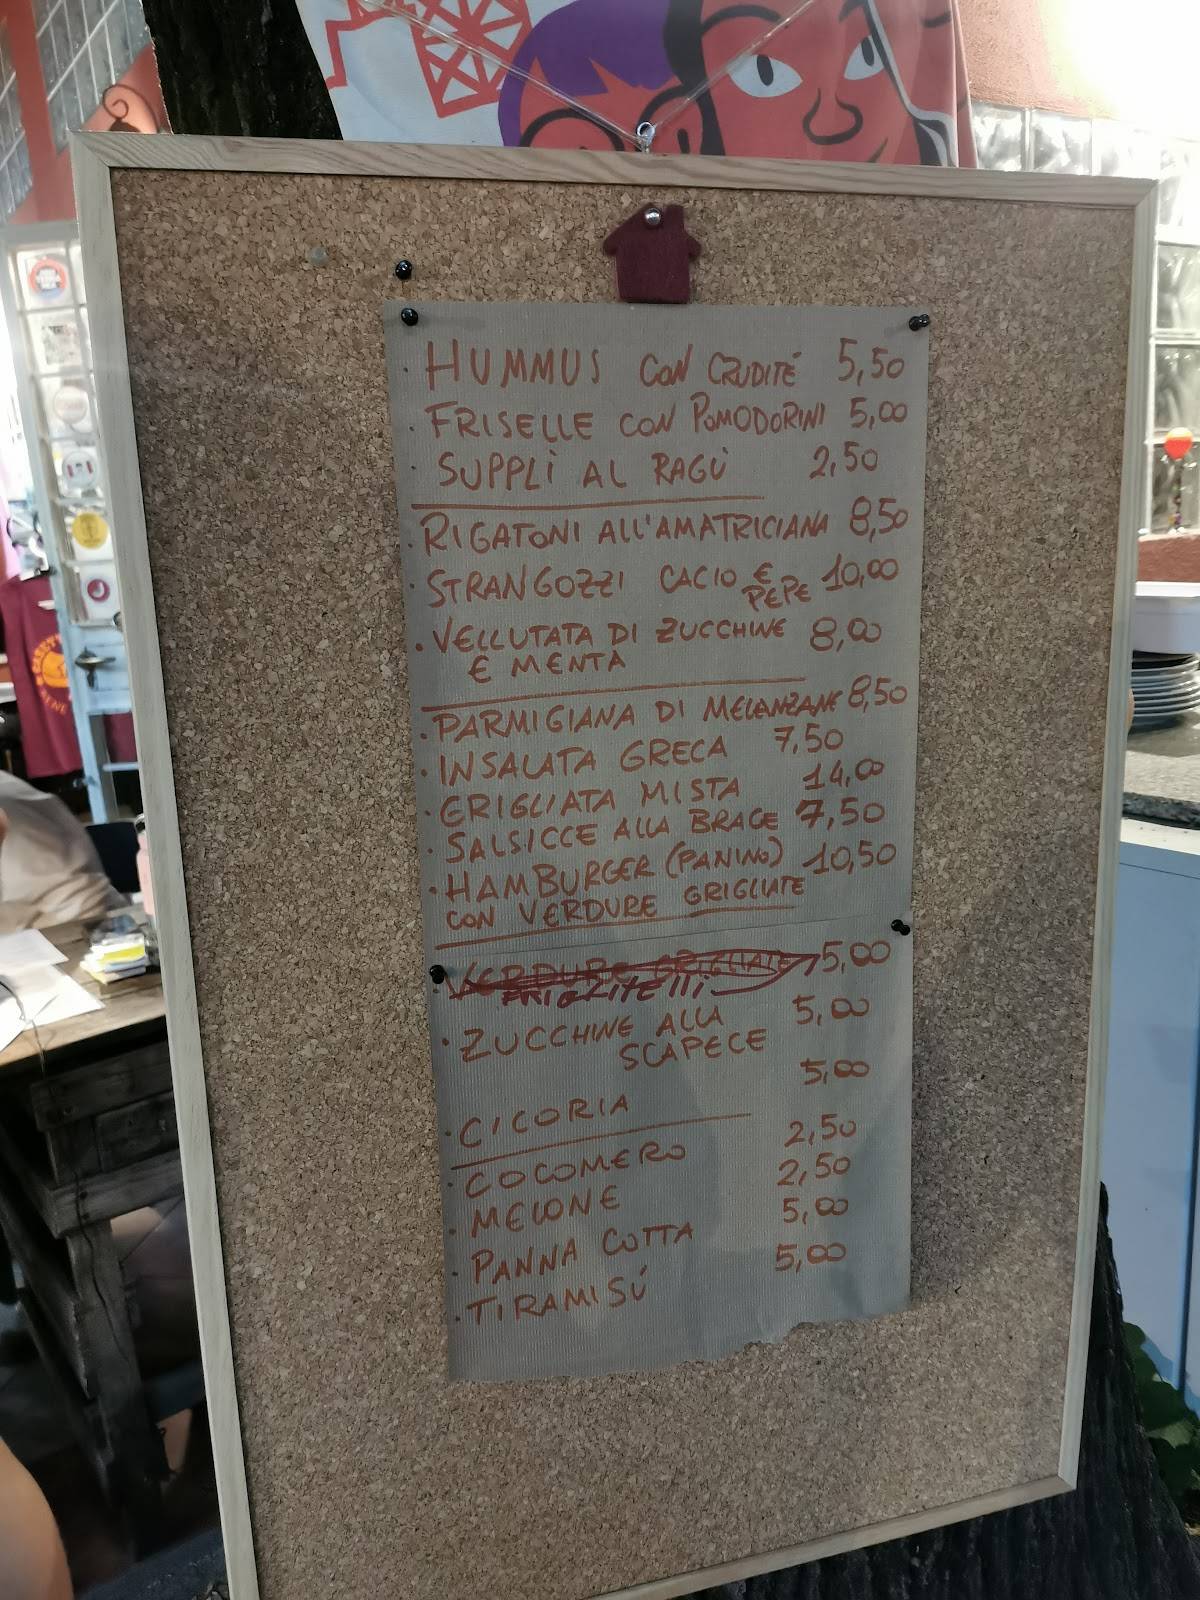 · HUMMUS CON CRUDITÉ 5,50
· FRISELLE CON POMODORINI 5,00
· SUPPLÌ AL RAGÙ 2,50
· RIGATONI ALL'AMATRICIANA 8,50
· STRANGOZZI CACIO E PEPE 10,00
· VELLUTATA DI ZUCCHINE 8,00
E MENTA
· PARMIGIANA DI MELANZANE 8,50
· INSALATA GRECA 7,50
· GRIGLIATA MISTA 14,00
· SALSICCE ALLA BRACE 7,50
· HAMBURGER (PANINO) 10,50
CON VERDURE GRIGLIATE
· VERDURE GRIGLIATE 5,00
FRIGGITELLI
· ZUCCHINE ALLA 5,00
SCAPECE
5,00
· CICORIA
· COCOMERO 2,50
· MELONE 2,50
· PANNA COTTA 5,00
· TIRAMISÚ 5,00